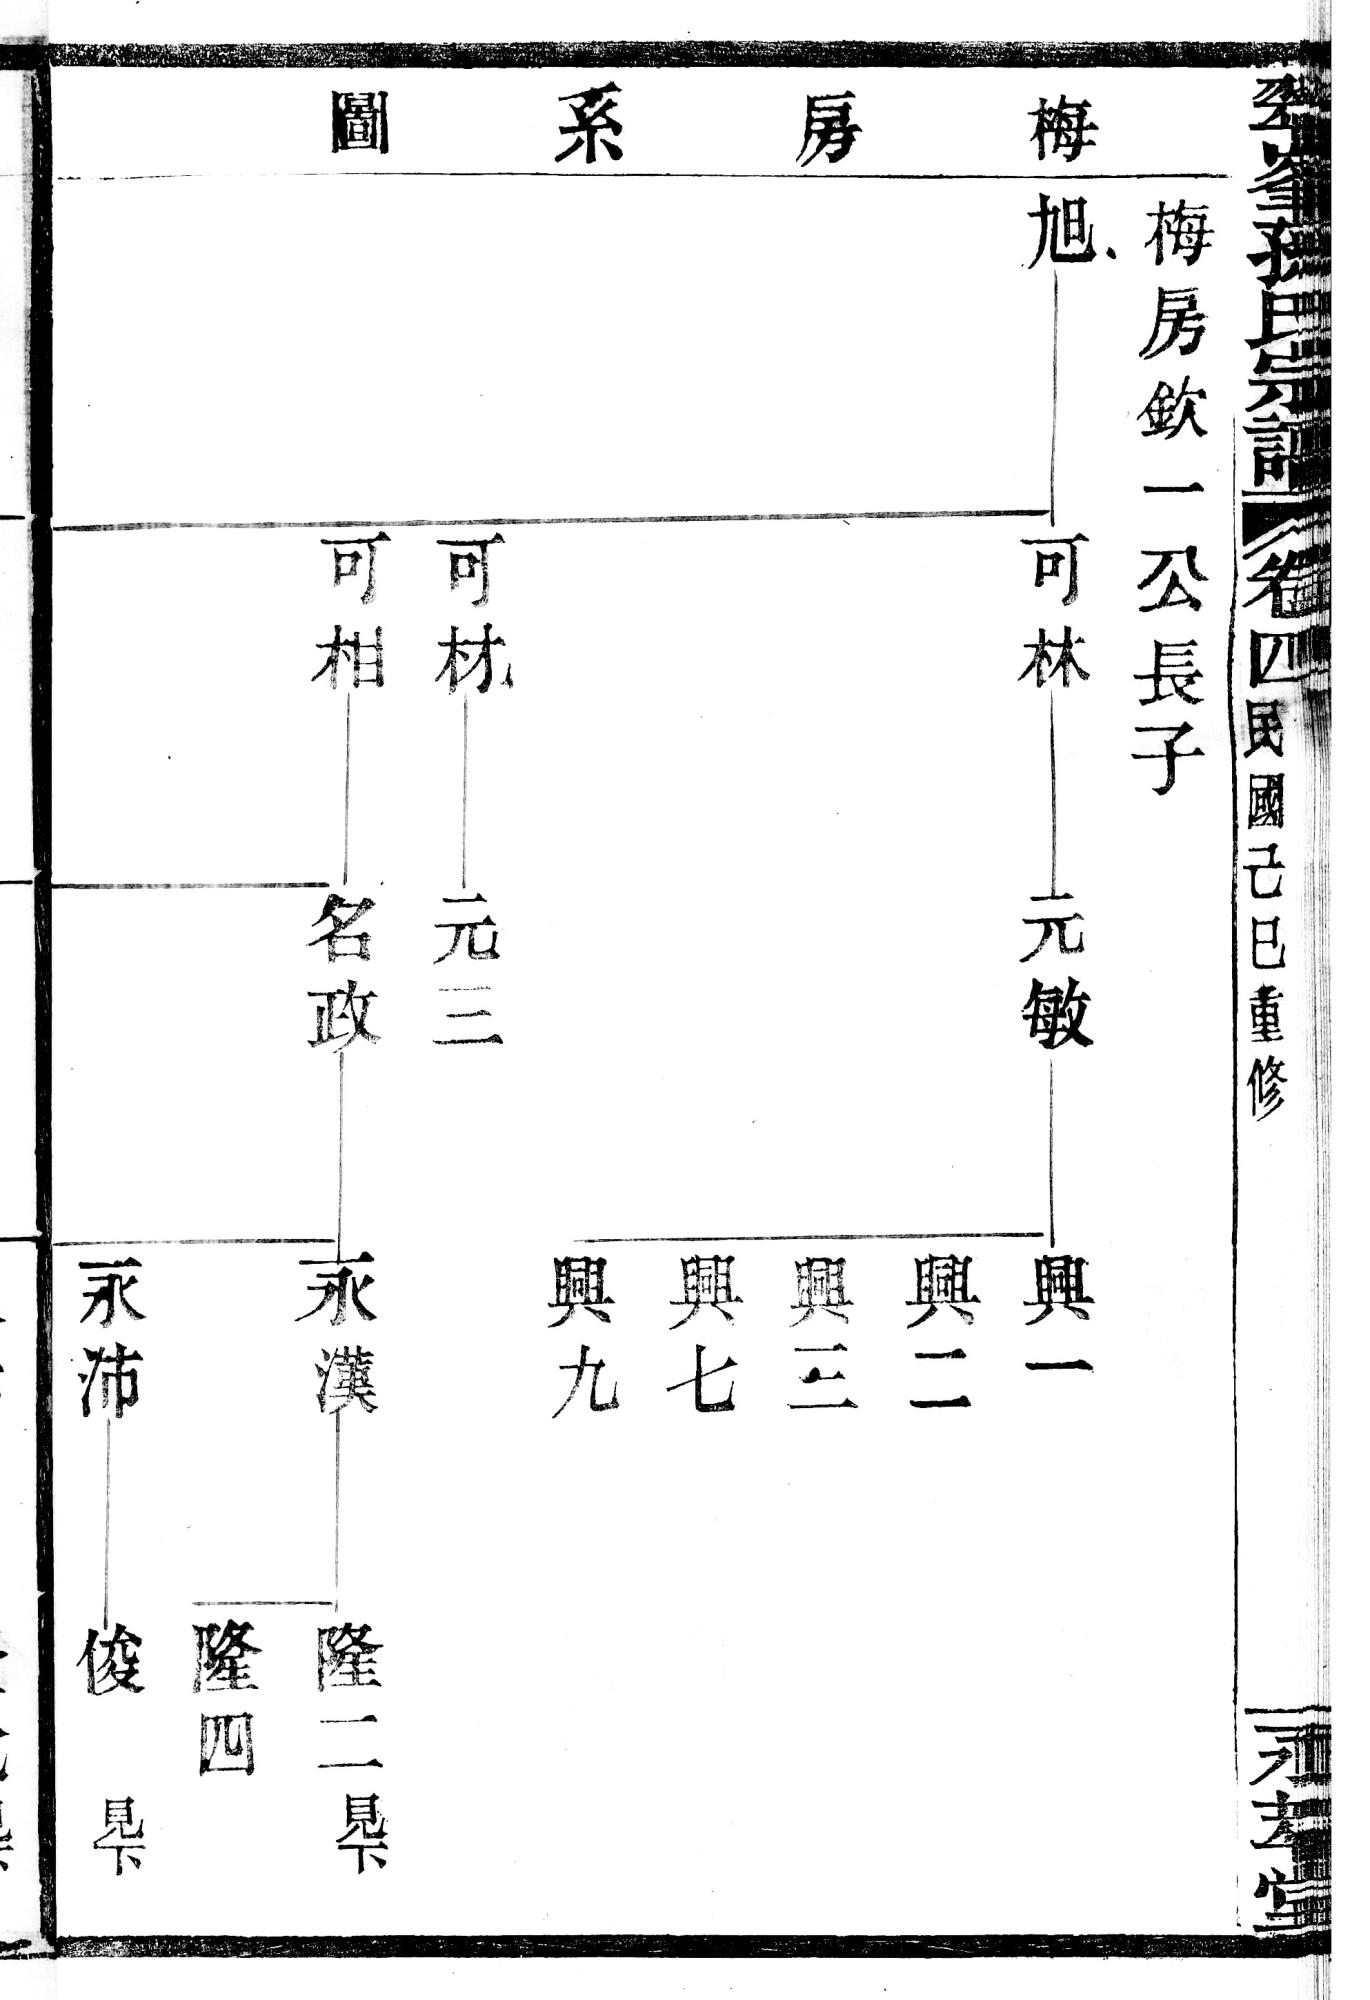 孫氏宗譜
卷四
民國己巳重修
梅房系圖
梅房欽一公長子
旭
可林
可材
可相
元敏
元三
名政
興一
興二
興三
興七
興九
永漢
永沛
隆二 見下
隆四
俊 見下